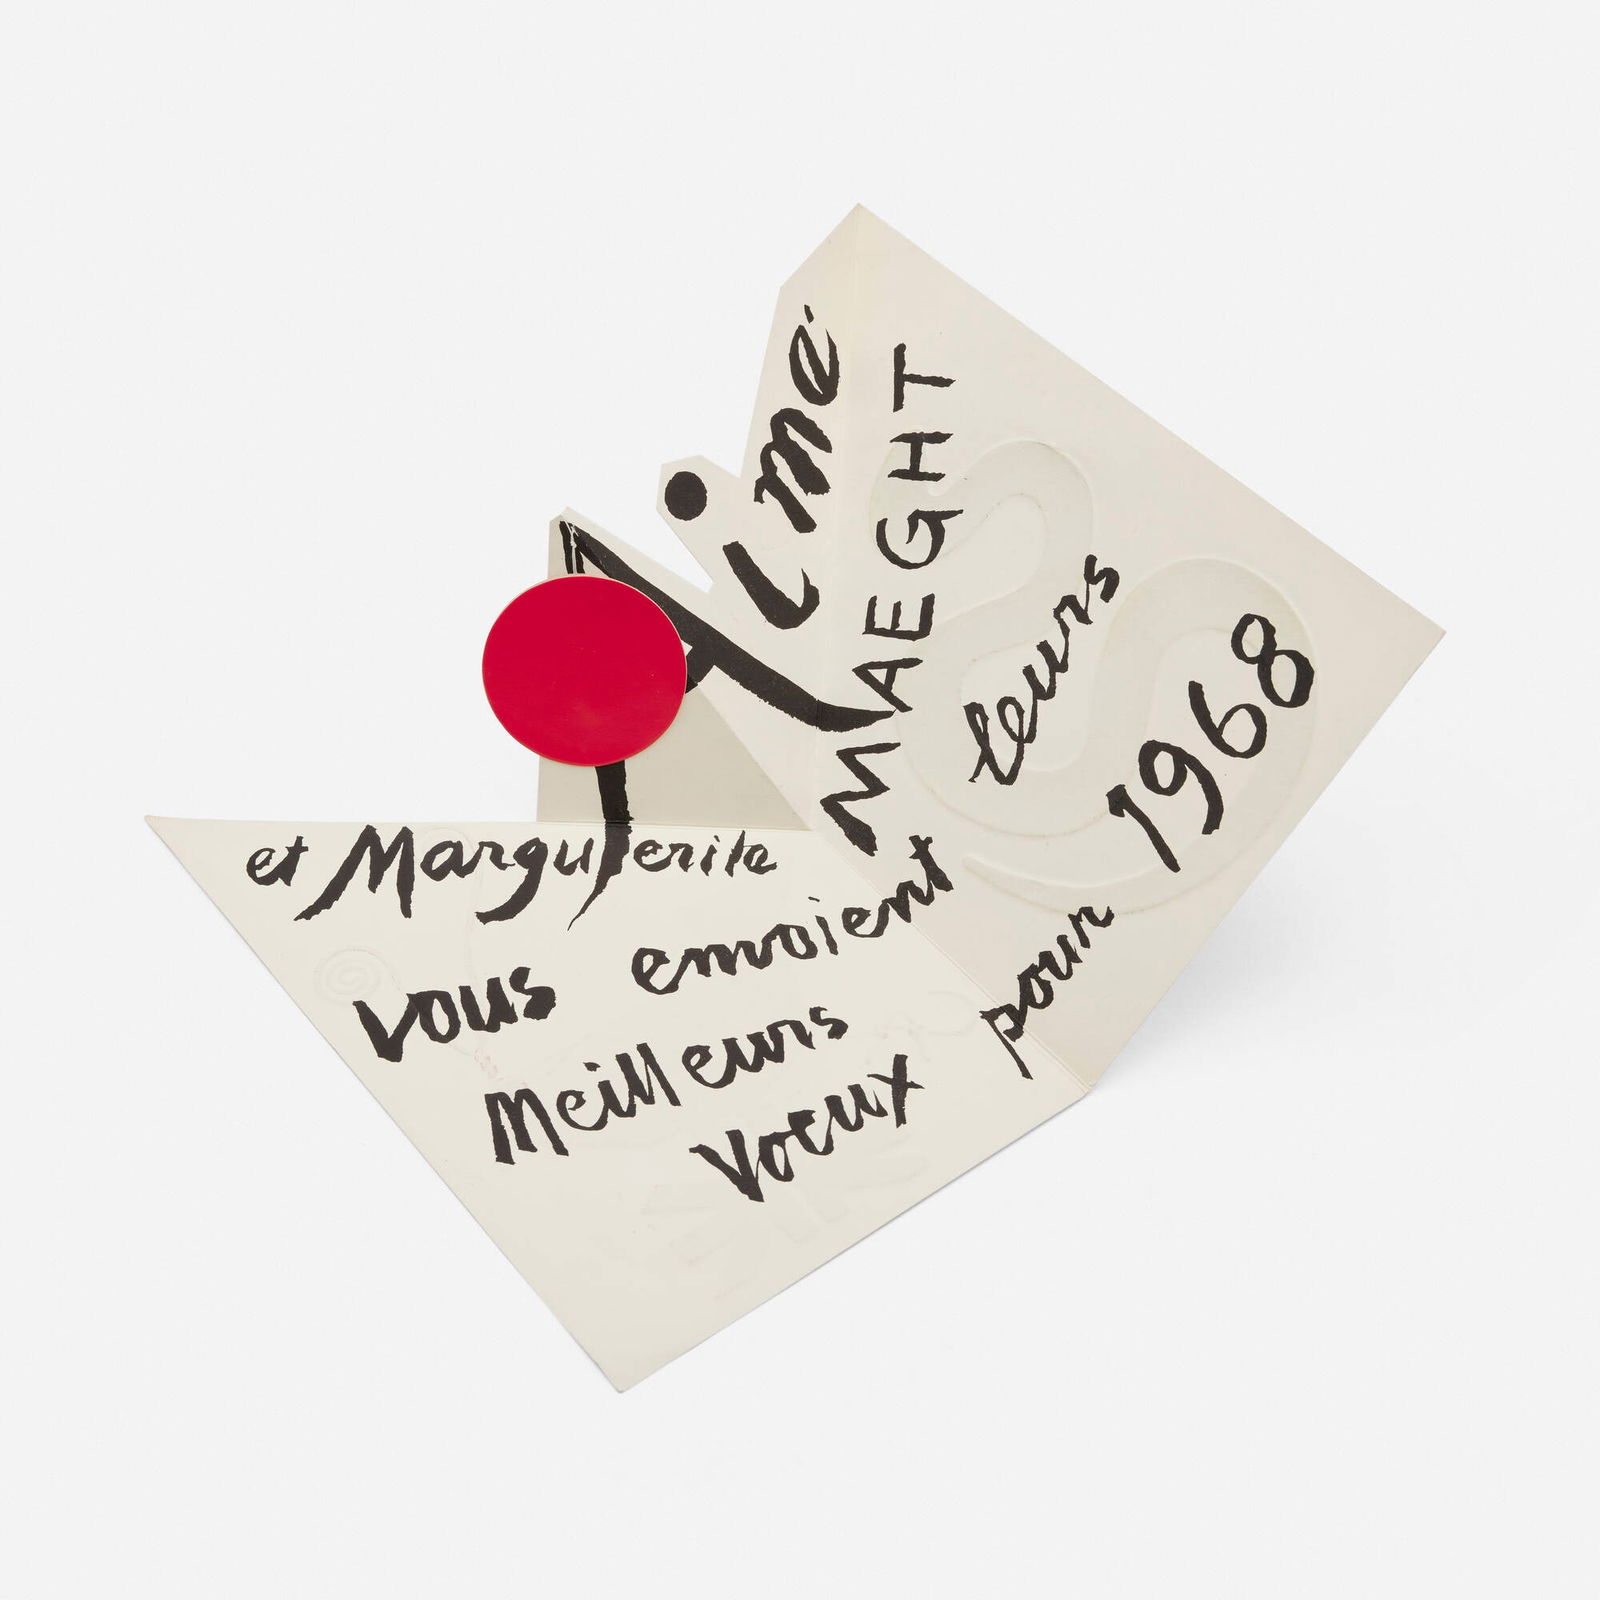 Aimé
MAEGHT
et Marguerite
vous envoient
leurs
Meilleurs
Voeux
pour 1968